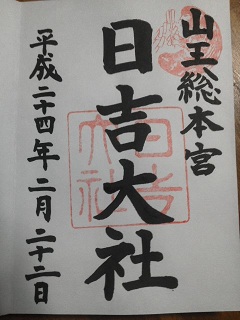 山王総本宮
日吉大社
平成二十四年二月二十二日
日吉大社